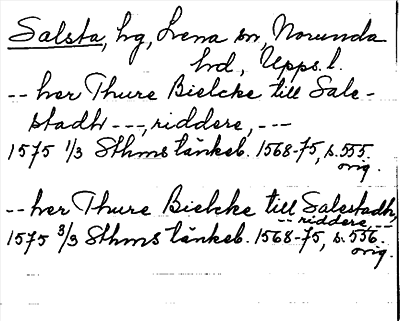 Salsta, hg, Lena sn, Norunda
hd, Upps. l.
-- her Thure Bielcke till Sale-
stadh ---, riddere, ---
1575 1/3 Sthms tänkeb. 1568-75, s. 555
orig.
-- her Thure Bielcke till Salestadh,
-- riddere, --
1575 3/3 Sthms tänkeb. 1568-75, s. 556.
orig.